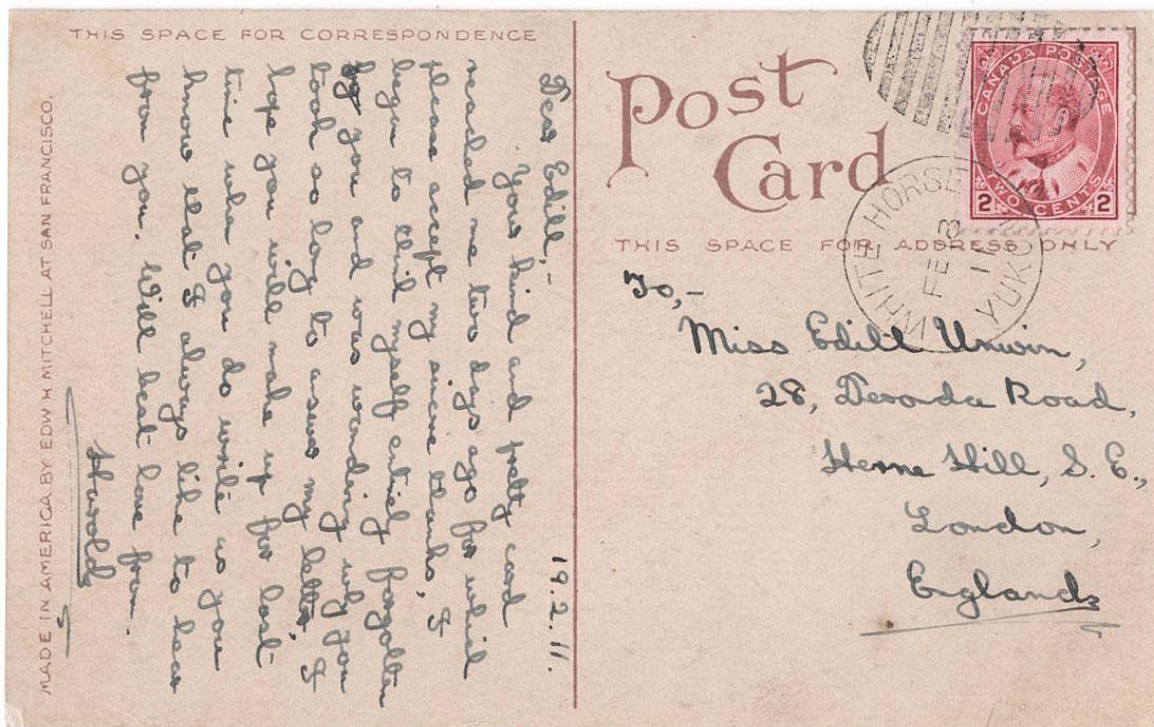 THIS SPACE FOR CORRESPONDENCE
19.2.11.
Dear Edith,-
Your kind and pretty card
reached me two days ago for which
please accept my sincere thanks, I
began to think myself entirely forgotten
by you and was wondering why you
took so long to answer my letter, I
hope you will make up for lost
time when you do write as you
know that I always like to hear
from you. With best love from.
Harold
MADE IN AMERICA BY EDW H MITCHELL AT SAN FRANCISCO.
Post
Card
CANADA POSTAGE
2 TWO CENTS 2
WHITE HORSE
FE
11
YUKON
THIS SPACE FOR ADDRESS ONLY
To,-
Miss Edith Unwin,
28, Deronda Road,
Herne Hill, S. E.,
London,
England